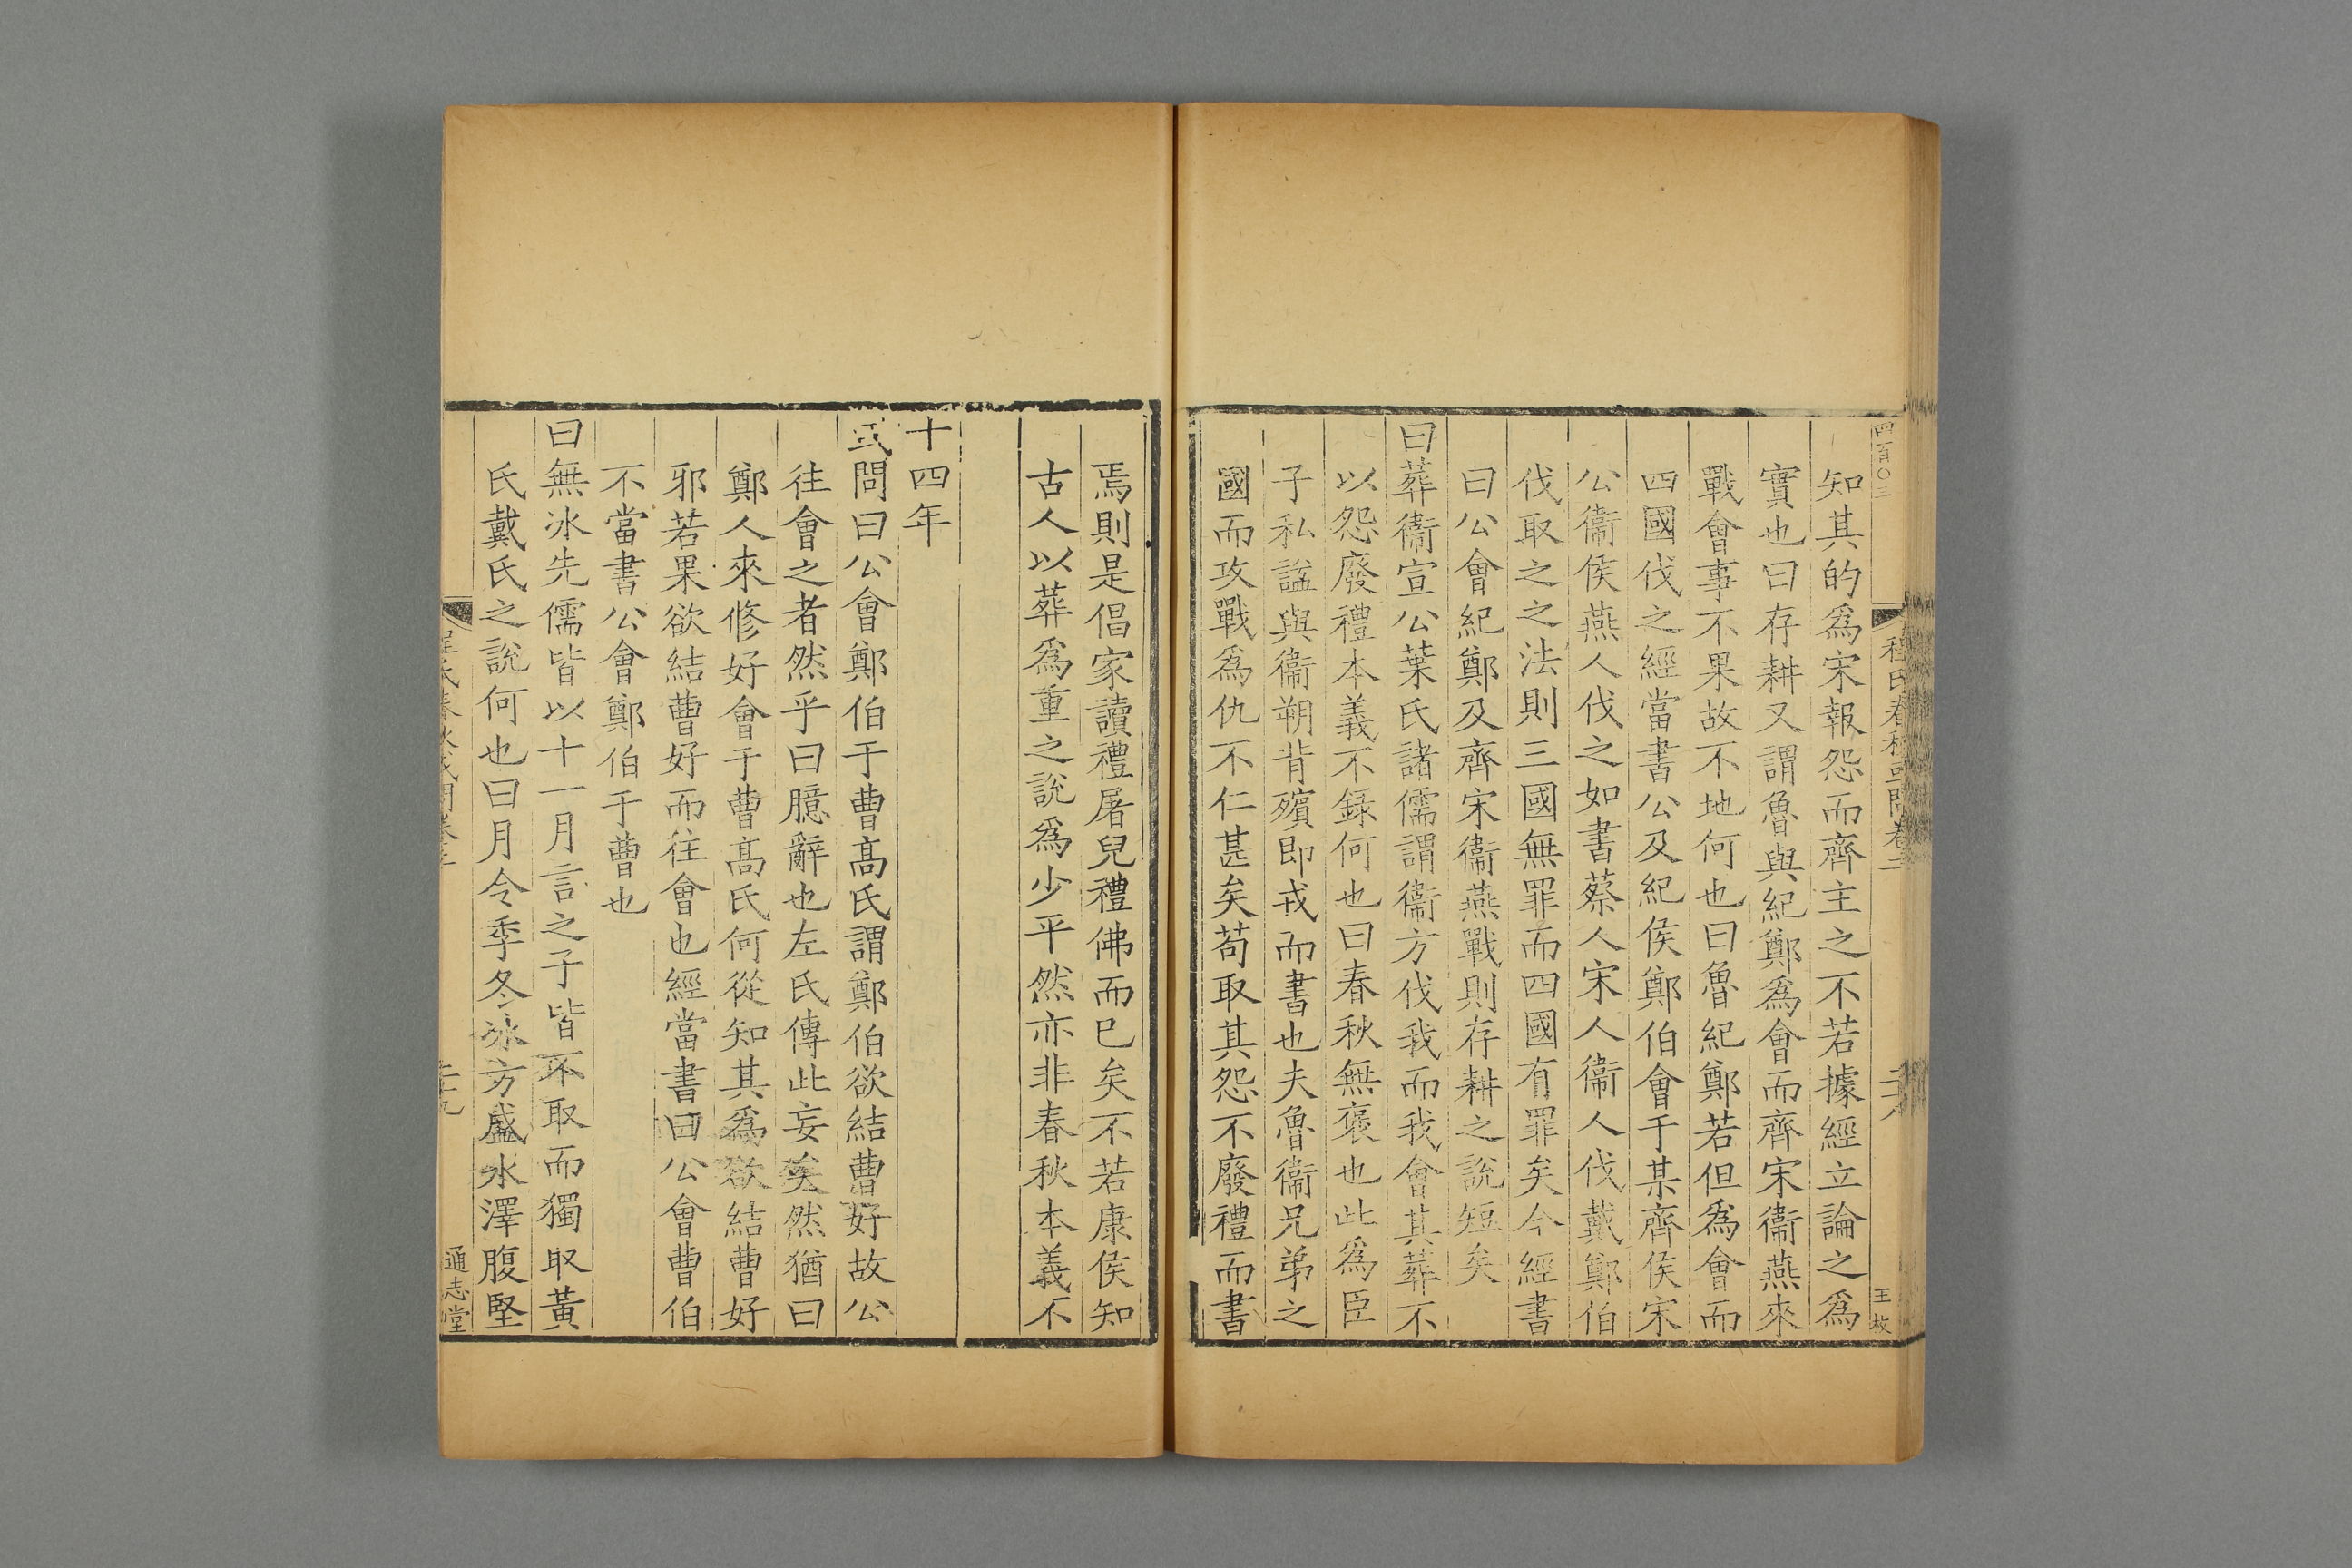 四百〇三
程氏春秋或問卷二
二十八
王枚
知其的爲宋報怨而齊主之不若據經立論之爲
實也曰存耕又謂魯與紀鄭爲會而齊宋衞燕來
戰會事不果故不地何也曰魯紀鄭若但爲會而
四國伐之經當書公及紀侯鄭伯會于某齊侯宋
公衞侯燕人伐之如書蔡人宋人衞人伐戴鄭伯
伐取之之法則三國無罪而四國有罪矣今經書
曰公會紀鄭及齊宋衞燕戰則存耕之說短矣
曰葬衞宣公葉氏諸儒謂衞方伐我而我會其葬不
以怨廢禮本義不録何也曰春秋無襃也此爲臣
子私諡與衞朔背殯即戎而書也夫魯衞兄弟之
國而攻戰爲仇不仁甚矣苟取其怨不廢禮而書
焉則是倡家讀禮屠兒禮佛而已矣不若康侯知
古人以葬爲重之說爲少平然亦非春秋本義不
十四年
或問曰公會鄭伯于曹高氏謂鄭伯欲結曹好故公
往會之者然乎曰臆辭也左氏傳此妄矣然猶曰
鄭人來修好會于曹高氏何從知其爲欲結曹好
邪若果欲結曹好而往會也經當書曰公會曹伯
不當書公會鄭伯于曹也
曰無冰先儒皆以十一月言之子皆不取而獨取黃
氏戴氏之說何也曰月令季冬冰方盛水澤腹堅
程氏春秋或問卷二
二十九
通志堂